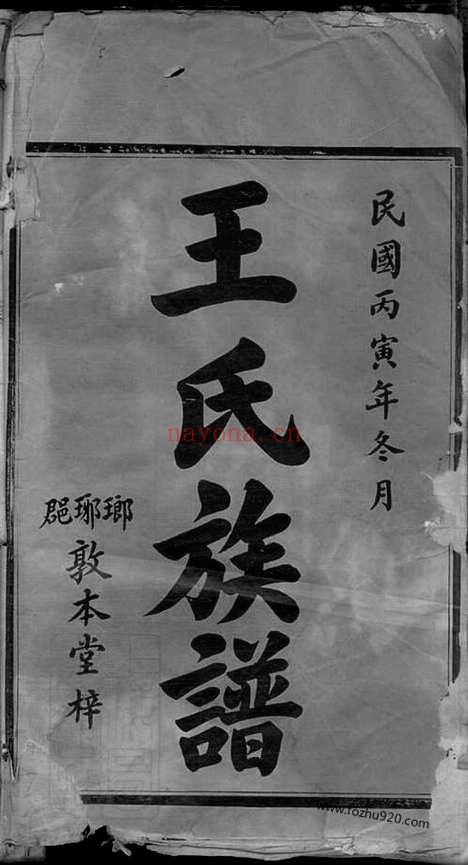 民國丙寅年冬月
王氏族譜
瑯琊郡
敦本堂梓
nayona.cn
www.fozhu920.com